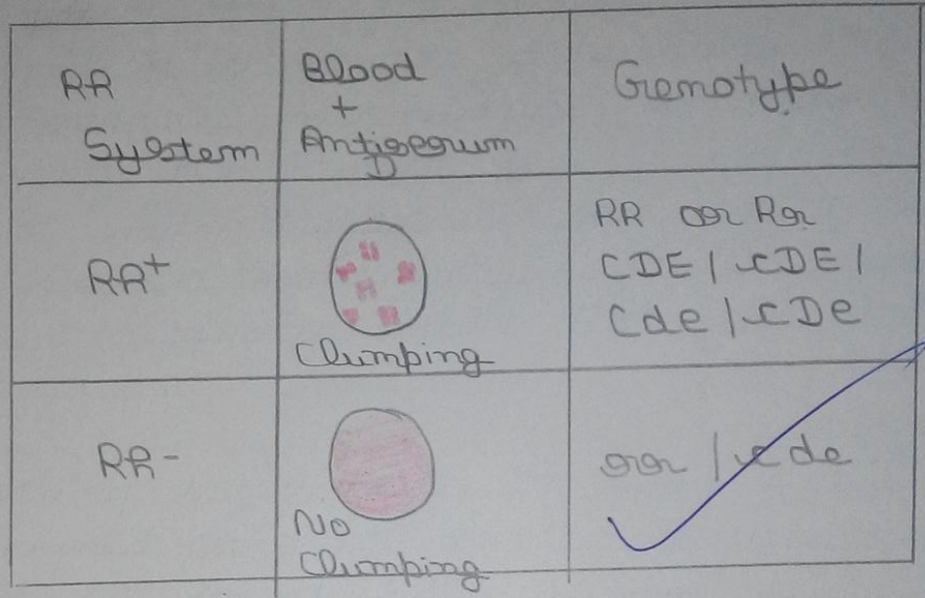 Rh
System
Blood
+
Antiserum
Genotype
Rh+
Clumping
RR or Rr
CDE / cDE /
Cde / cDe
Rh-
No
Clumping
rr / cde